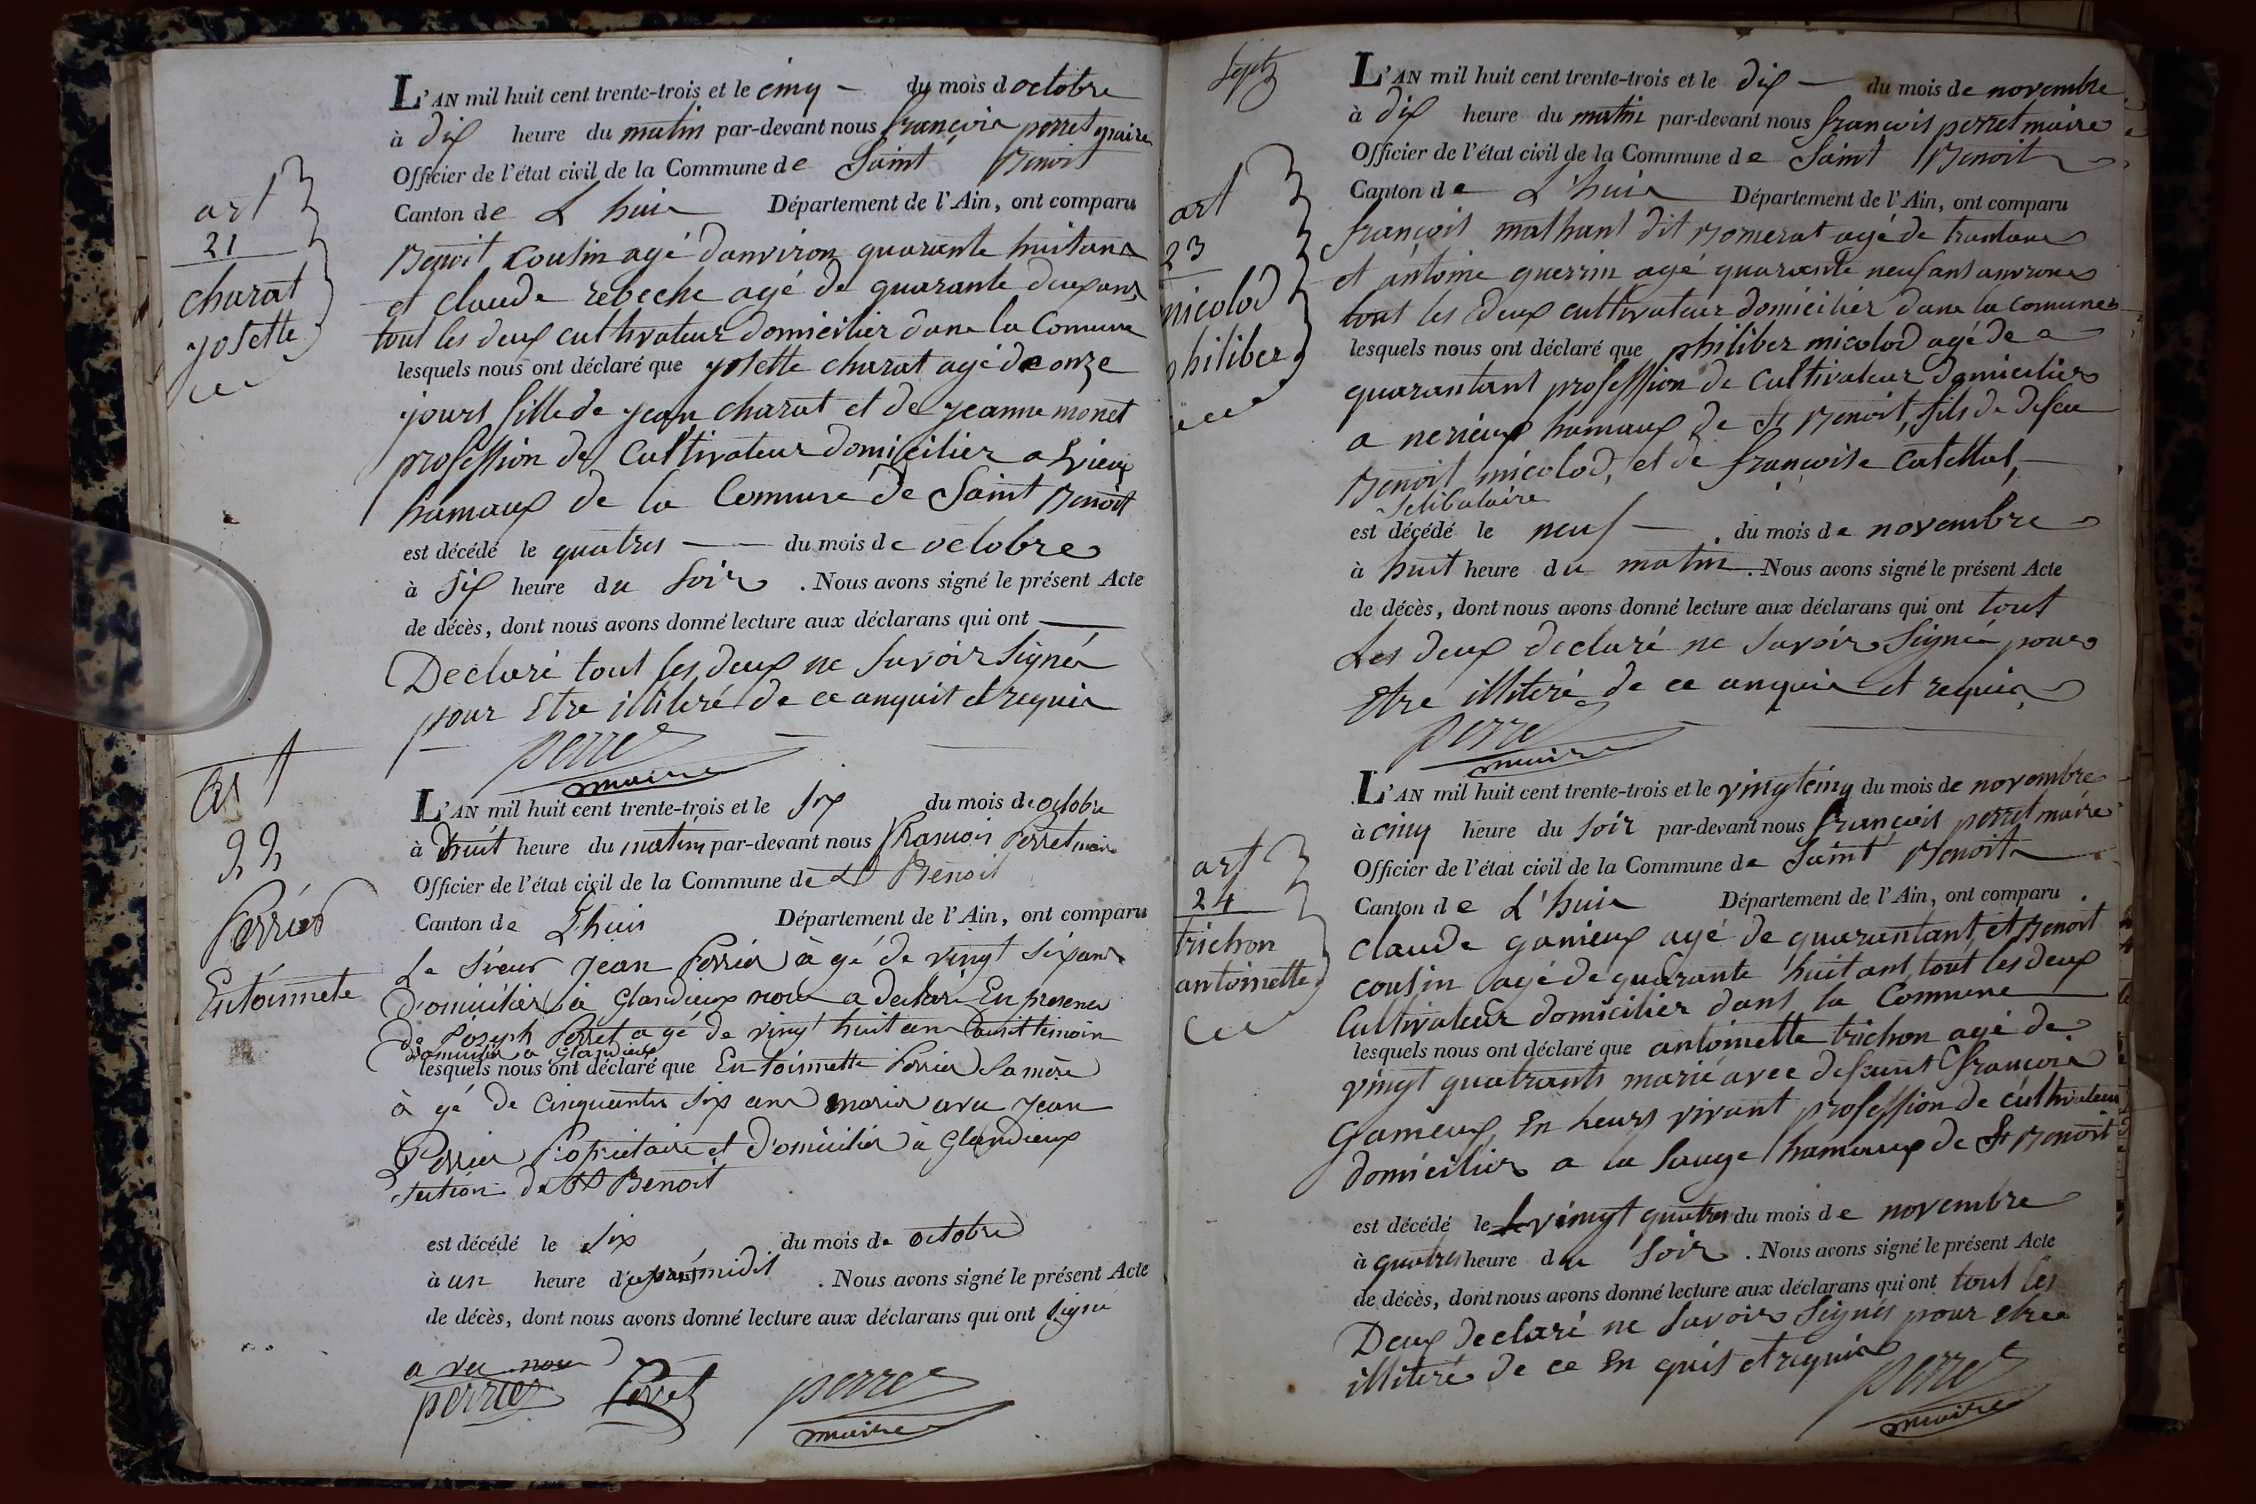 art
21
charat
yosette
L'AN mil huit cent trente-trois et le cinq - du mois d octobre
à dix heure du matin par-devant nous françois perret maire
Officier de l'état civil de la Commune de Saint Benoit
Canton de L huis Département de l'Ain, ont comparu
Benoit Cousin agé danviron quarante huitans
et claude rebeche agé de quarante deuxans
tout les deux cultivateur domicilier dans la Comune
lesquels nous ont déclaré que yosette charat agé de onze
jours fille de jean charat et de jeanne monet
profession de Cultivateur domicilier a
hamaux de la Comune de Saint Benoit
est décédé le quatres - du mois de octobre
à six heure du soir . Nous avons signé le présent Acte
de décès, dont nous avons donné lecture aux déclarans qui ont
Declaré tout les deux ne savoir signér
pour Etre illiteré de ce anquit et requis
perret
maire
art
22
Perrier
Entoinnete
L'AN mil huit cent trente-trois et le six du mois de octobre
à huit heure du matin par-devant nous francois Perret maire
Officier de l'état civil de la Commune de St Benoit
Canton de Lhuis Département de l'Ain, ont comparu
Le sieur Jean Perrier à gé de vingt sixans
Domicilier à Glandieux nous a declaré En presence
de Joseph Perret a gé de vingt huit ans aussit temoin
domicilier a Glandieux
lesquels nous ont déclaré que Entoinnette Perrier Sa mère
à gé de cinquante six ans marier avec Jean
Perrier Propriétaire et Domicilier à Glandieux
section de St Benoit
est décédé le six du mois de octobre
à un heure d'après midit . Nous avons signé le présent Acte
de décès, dont nous avons donné lecture aux déclarans qui ont signé
avec nous
perrier Perret perret
maire
Sept
art
23
micolod
philiber
L'AN mil huit cent trente-trois et le dix - du mois de novembre
à dix heure du matin par-devant nous françois perret maire
Officier de l'état civil de la Commune de Saint Benoit
Canton de L'huis Département de l'Ain, ont comparu
françois mathant dit pomerat agé de trantans
et antoine guerrin agé quarante neuf ans anvirons
tout les deux cultivateur domicilier dans la comune
lesquels nous ont déclaré que philiber micolod agé de
quarantant profession de Cultivateur domicilier
a nerieux hamaux de St Benoit, fils de defeu
Benoit micolod, et de françoise catellat,
Selibataire
est décédé le neuf - du mois de novembre
à huit heure du matin . Nous avons signé le présent Acte
de décès, dont nous avons donné lecture aux déclarans qui ont tout
Les deux declaré ne savoir signér pour
Etre illiteré de ce anquis et requis
perret
maire
art
24
trichon
antoinette
L'AN mil huit cent trente-trois et le vingtcinq du mois de novembre
à cinq heure du soir par-devant nous françois perret maire
Officier de l'état civil de la Commune de Saint Benoit
Canton de L'huis Département de l'Ain, ont comparu
claude ganieux agé de quarantant et Benoit
cousin agé de quarante huit ant, tout les deux
Cultivateur domicilier dans la Commune
lesquels nous ont déclaré que antoinette trichon agé de
vingt quatrants marié avec defaunt françois
Ganieux En leurs vivant profession de cultivateur
domicilier a la Sauge hamaux de St Benoit
est décédé le vingt quatres du mois de novembre
à quatres heure du soir . Nous avons signé le présent Acte
de décès, dont nous avons donné lecture aux déclarans qui ont tout les
Deux declaré ne savoir signér pour etre
illiteré de ce En quis et requis
perret
maire